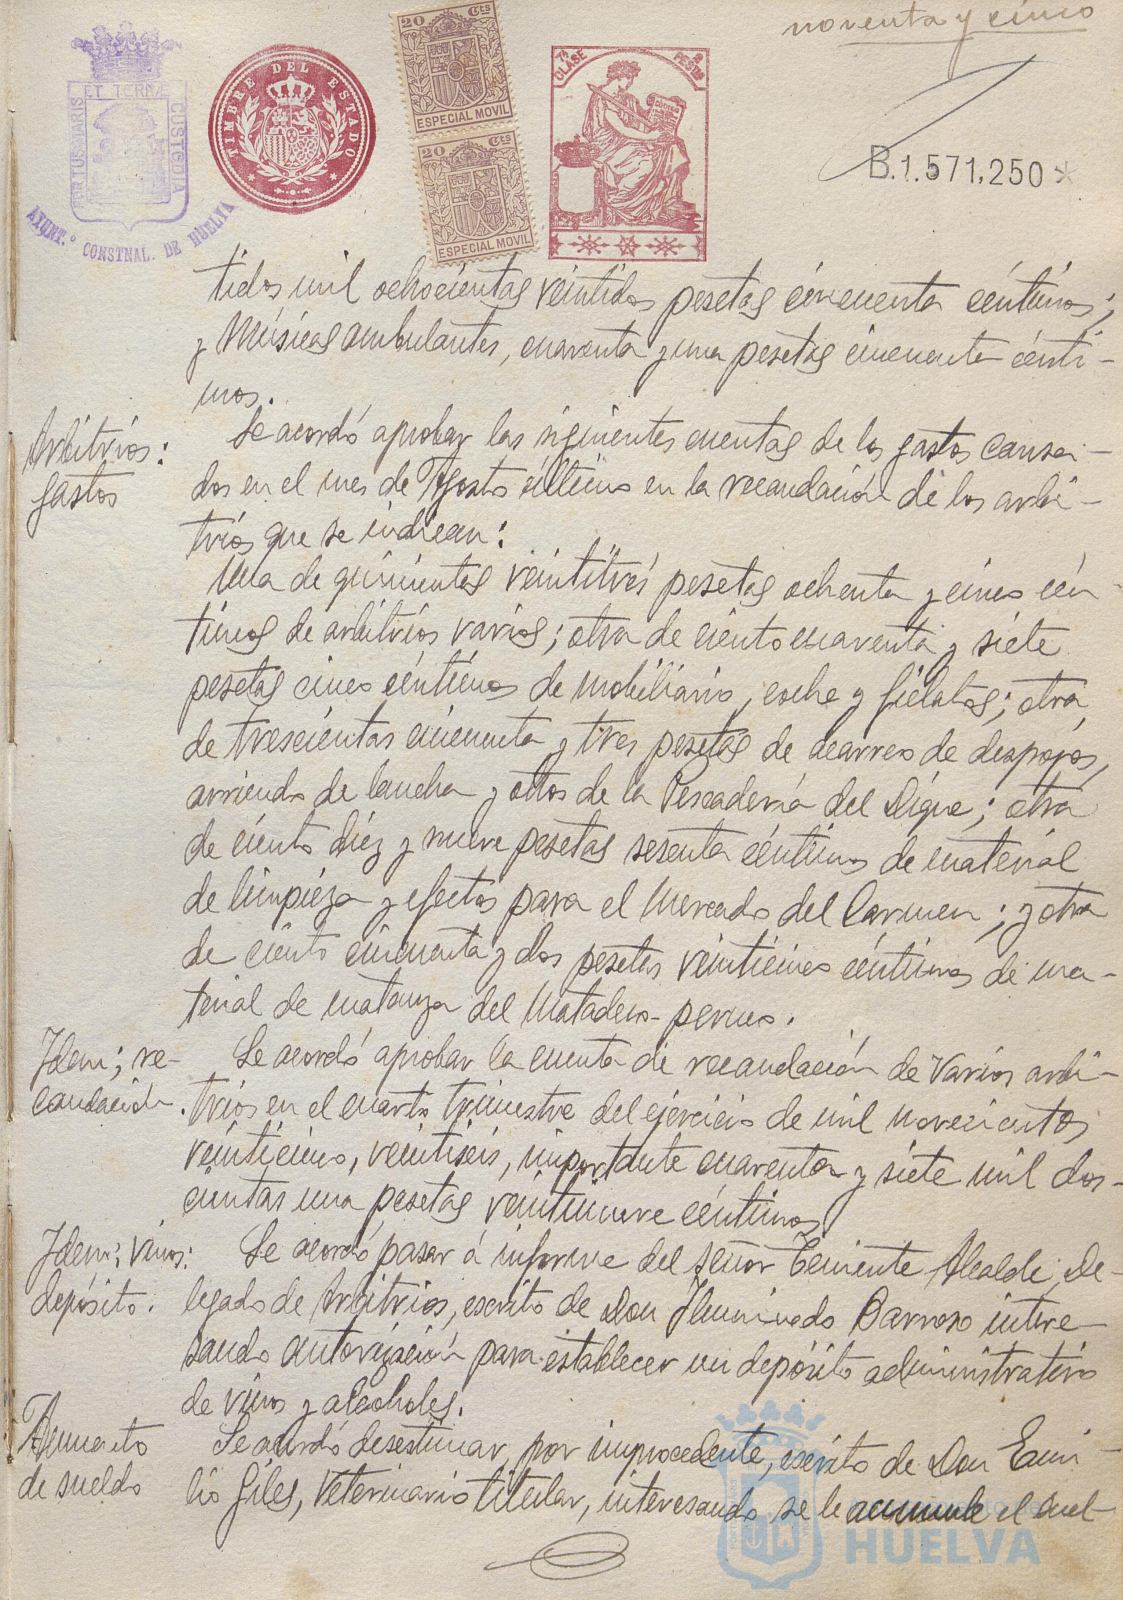 noventa y cinco
PORTUS MARIS ET TERRÆ CUSTODIA
AYUNT.º CONSTNAL. DE HUELVA
TIMBRE DEL ESTADO
20 Cts
ESPECIAL MOVIL
20 Cts
ESPECIAL MOVIL
7ª CLASE
PESETAS
B.1.571.250
tidos mil ochocientas veintidos pesetas cincuenta céntimos;
y Músicas ambulantes, cuarenta y una pesetas cincuenta cénti-
mos.
Arbitrios:
gastos
Se acordó aprobar las siguientes cuentas de los gastos causa-
dos en el mes de Agosto último en la recaudación de los arbi-
trios que se indican:
Una de quinientas veintitrés pesetas ochenta y cinco cén-
timos de arbitrios varios; otra de ciento cuarenta y siete
pesetas cinco céntimos de mobiliario, coche y fielatos; otra
de trescientas cincuenta y tres pesetas de acarreo de despojos,
arriendo de lancha y otros de la Pescadería del Dique; otra
de ciento diez y nueve pesetas sesenta céntimos de material
de limpieza y efectos para el Mercado del Carmen; y otra
de ciento cincuenta y dos pesetas veinticinco céntimos de ma-
terial de matanza del Matadero-
Idem; re-
caudación.
Se acordó aprobar la cuenta de recaudación de varios arbi-
trios en el cuarto trimestre del ejercicio de mil novecientos
veinticinco, veintiseis, importante cuarenta y siete mil dos-
cientas una pesetas veintinueve céntimos.
Idem; vinos:
depósito.
Se acordó pasar á informe del señor Teniente Alcalde, De-
legado de Arbitrios, escrito de Don Iluminado Barroso intere-
sando autorización para establecer un depósito administrativo
de vinos y alcoholes.
Aumento
de sueldo
Se acordó desestimar, por improcedente, escrito de Don Emi-
lio Giles, Veterinario titular, interesando se le acumule el suel-
HUELVA